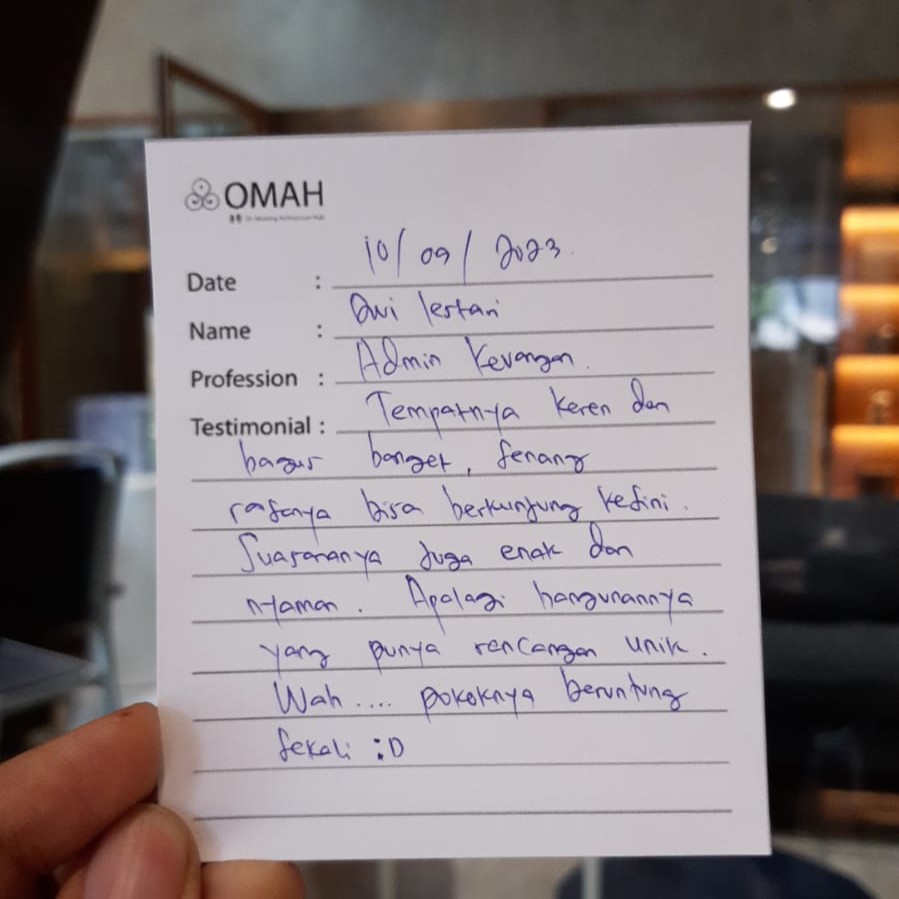 OMAH
Date : 10/09/2023.
Name : Dwi lestari
Profession : Admin Keuangan.
Testimonial : Tempatnya keren dan
bagus banget, senang
rasanya bisa berkunjung kesini.
Suasananya juga enak dan
nyaman. Apalagi bangunannya
yang punya rancangan unik.
Wah.... pokoknya beruntung
sekali :D